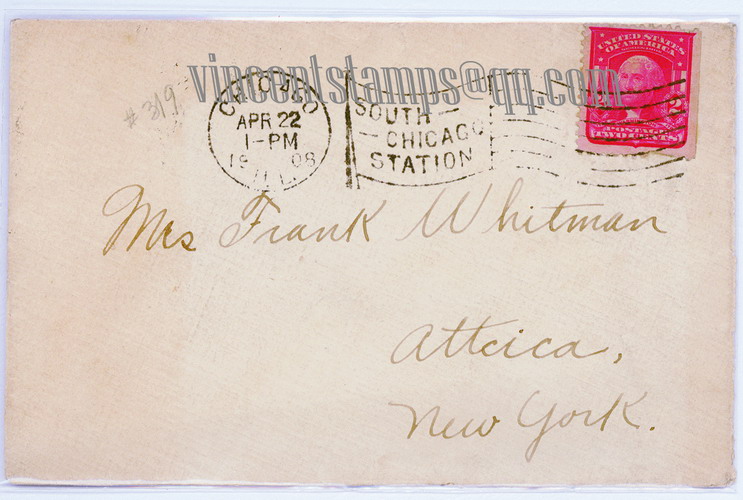 UNITED STATES
OF AMERICA
vincentstamps@qq.com
# 319
CHICAGO
APR 22
1-PM
19 08
ILL.
SOUTH
CHICAGO
STATION
2
POSTAGE
TWO CENTS
Mrs Frank Whitman
Attcica,
New York.